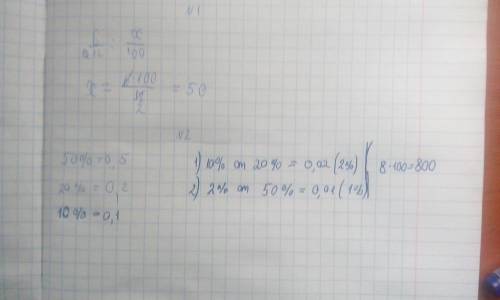 №1
x/100
x = 100/2 = 50
№2
50% = 0,5
20% = 0,2
10% = 0,1
1) 10% от 20% = 0,02 (2%)
2) 2% от 50% = 0,01 (1%)
8·100=800